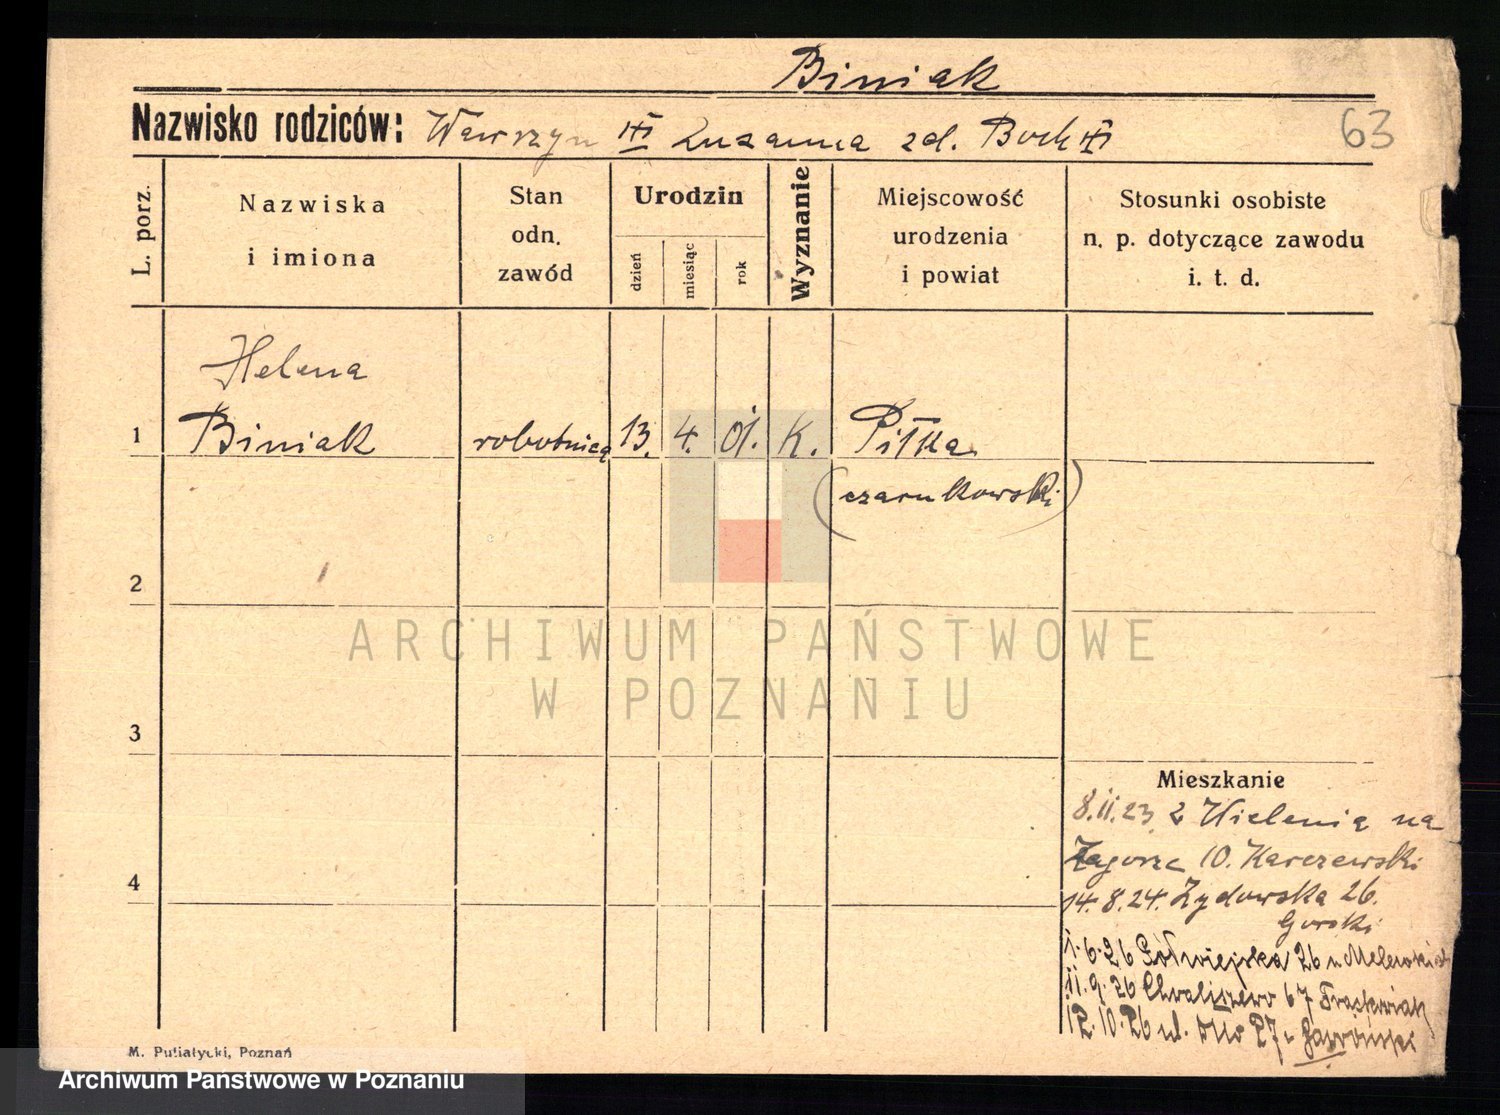 Biniak
Nazwisko rodziców: Wawrzyn Zuzanna zd. Boch
63
L. porz.
Nazwiska
i imiona
Stan
odn.
zawód
Urodzin
dzień
miesiąc
rok
Wyznanie
Miejscowość
urodzenia
i powiat
Stosunki osobiste
n. p. dotyczące zawodu
i. t. d.
Helena
1 Biniak robotnica 13. 4. 01. K. Piłka
(czarnkowski)
2
3
4
Mieszkanie
8.11.23 z Wielenia na
Zagorze 10. Karczewski
14.8.24. Żydowska 26.
Gorski
1.6.26 Półwiejska 26
11.9.26 Chwaliszewo 67
12.10.26 ul. Otto 27
M. Putiatycki, Poznań
ARCHIWUM PAŃSTWOWE
W POZNANIU
Archiwum Państwowe w Poznaniu